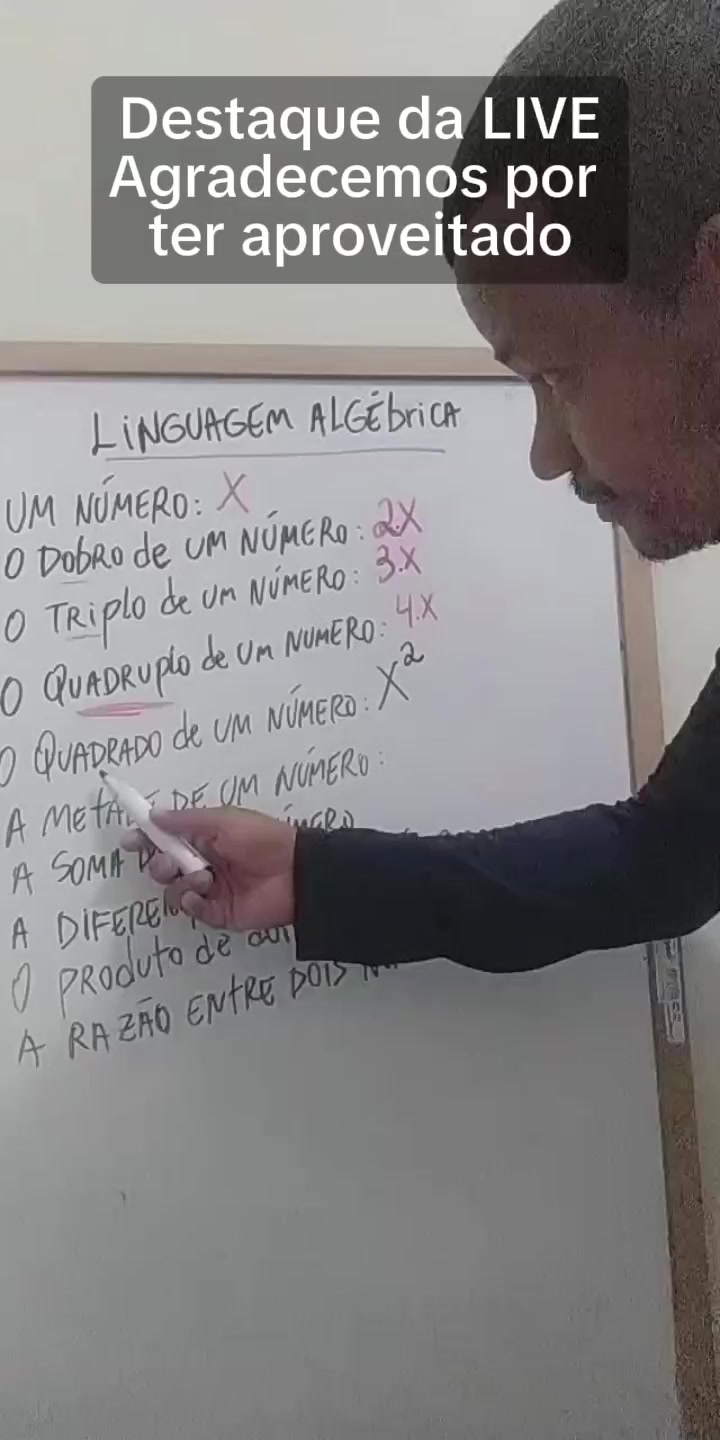 Destaque da LIVE
Agradecemos por
ter aproveitado
LINGUAGEM ALGÉbricA
UM NÚMERO: X
O DObRO de UM NÚMERO: 2.X
O TRiplo de UM NÚMERO: 3.X
O QUADRUplo de UM NUMERO: 4.X
O QUADRADO de UM NÚMERO: X²
A METADE DE UM NÚMERO:
A SOMA
A DIFEREN
O PRODUTO de
A RAZÃO ENTRE DOIS